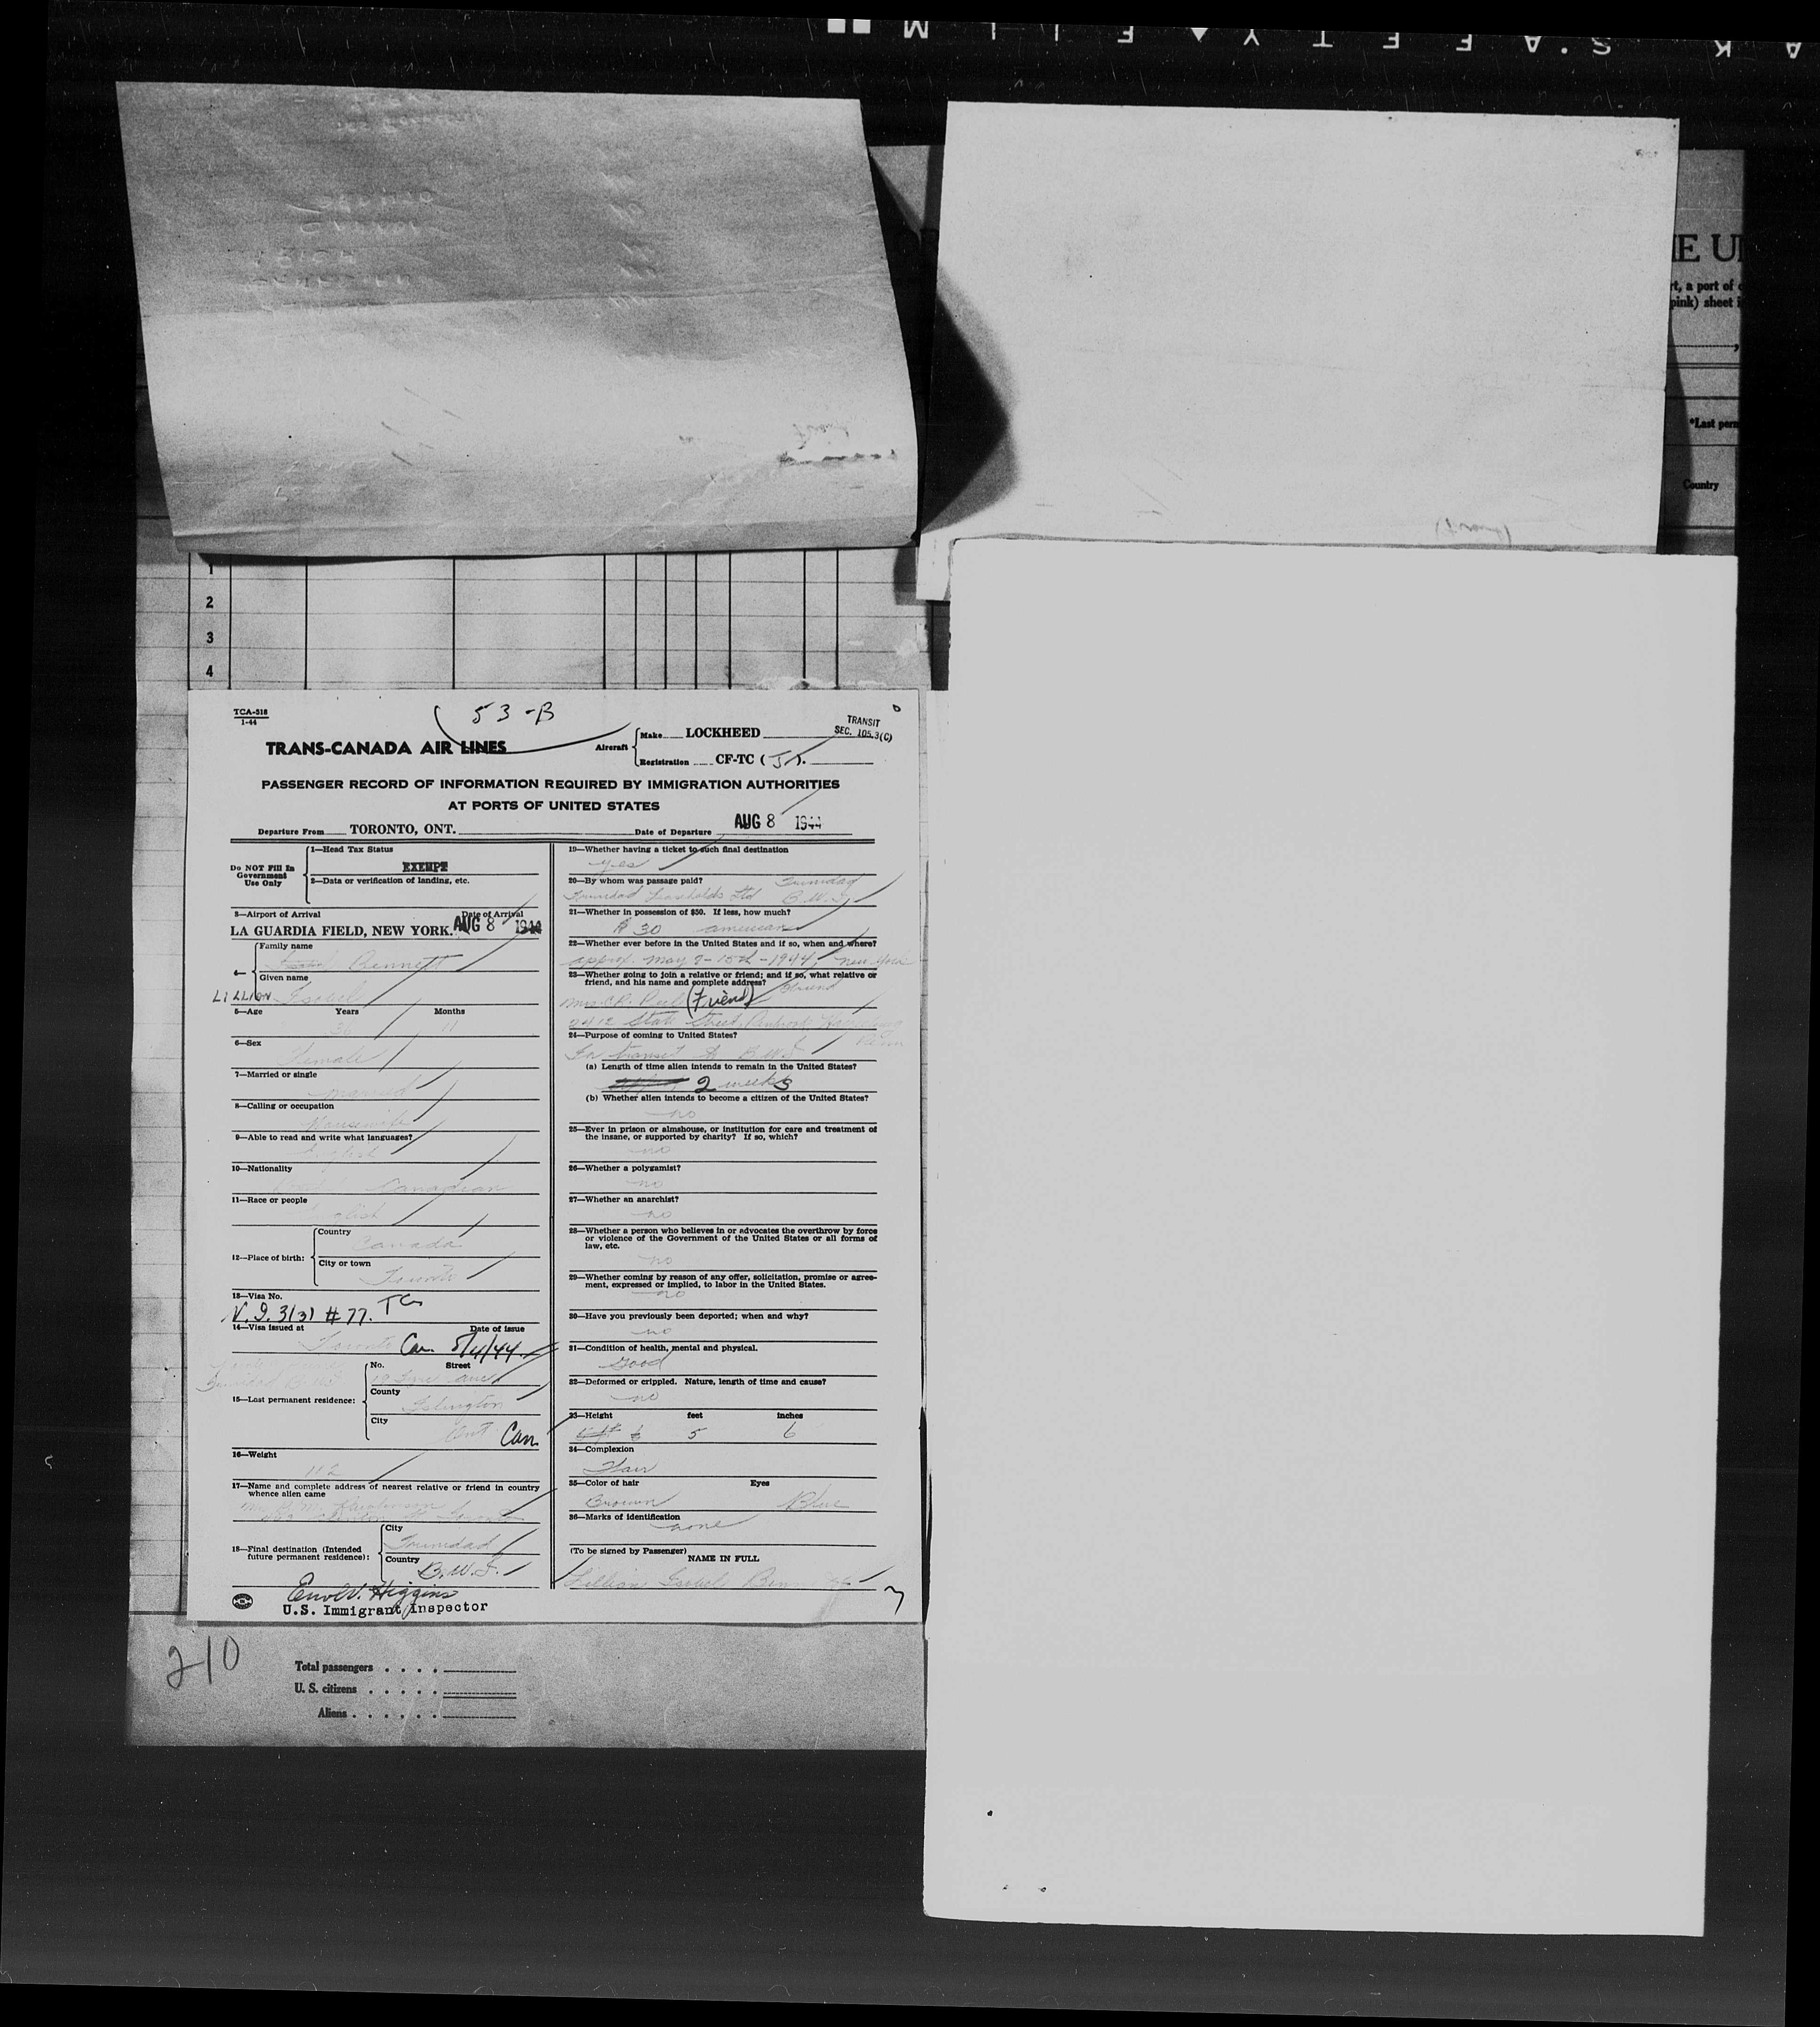 SAFETY FILM
E U
rt, a port of
pink) sheet
*Last perm
Country
1
2
3
4
TCA-518
1-44
53-B
TRANS-CANADA AIR LINES
Aircraft
Make LOCKHEED
Registration CF-TC ( ).
TRANSIT
SEC. 105.3(C)
PASSENGER RECORD OF INFORMATION REQUIRED BY IMMIGRATION AUTHORITIES
AT PORTS OF UNITED STATES
Departure From TORONTO, ONT. Date of Departure AUG 8 1944
Do NOT Fill In
Government
Use Only
1—Head Tax Status
EXEMPT
2—Data or verification of landing, etc.
3—Airport of Arrival Date of Arrival
LA GUARDIA FIELD, NEW YORK. AUG 8 1944
4—
Family name
Bennett
Given name
LILLION Isobel
5—Age Years Months
31 11
6—Sex
Female
7—Married or single
married
8—Calling or occupation
housewife
9—Able to read and write what languages?
English
10—Nationality
Canadian
11—Race or people
English
12—Place of birth:
Country
Canada
City or town
Toronto
13—Visa No.
V.I. 3(3) #77.
14—Visa issued at Date of issue
Toronto Can. 8/4/44
Trinidad B.W.I.
15—Last permanent residence:
No. Street
Ave
County
Islington
City
Ont Can.
16—Weight
112
17—Name and complete address of nearest relative or friend in country
whence alien came
Toronto
18—Final destination (Intended
future permanent residence):
City
Trinidad
Country
B.W.I.
Higgins
U.S. Immigrant Inspector
19—Whether having a ticket to such final destination
yes
20—By whom was passage paid? Trinidad
Trinidad Leaseholds Ltd B.W.I.
21—Whether in possession of $50. If less, how much?
$30 american
22—Whether ever before in the United States and if so, when and where?
approx. may 8-15th-1944, New York
23—Whether going to join a relative or friend; and if so, what relative or
friend, and his name and complete address? friend
Mrs. (Friend)
2412 State Street, Penbrook, Harrisburg
Penn
24—Purpose of coming to United States?
In transit to B.W.I
(a) Length of time alien intends to remain in the United States?
2 weeks
(b) Whether alien intends to become a citizen of the United States?
no
25—Ever in prison or almshouse, or institution for care and treatment of
the insane, or supported by charity? If so, which?
no
26—Whether a polygamist?
no
27—Whether an anarchist?
no
28—Whether a person who believes in or advocates the overthrow by force
or violence of the Government of the United States or all forms of
law, etc.
no
29—Whether coming by reason of any offer, solicitation, promise or agree-
ment, expressed or implied, to labor in the United States.
no
30—Have you previously been deported; when and why?
no
31—Condition of health, mental and physical.
Good
32—Deformed or crippled. Nature, length of time and cause?
no
33—Height feet inches
5 6
34—Complexion
Fair
35—Color of hair Eyes
Brown Blue
36—Marks of identification
none
(To be signed by Passenger)
NAME IN FULL
Lillion Isobel Bennett
210
Total passengers . . . .
U. S. citizens . . . . .
Aliens . . . . . .